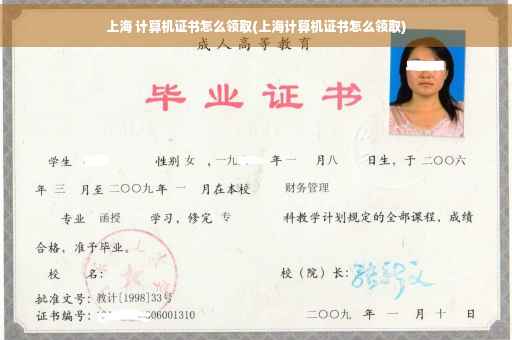 上海 计算机证书怎么领取(上海计算机证书怎么领取)
成人高等教育
毕业证书
学生 性别 女 ，一九 年 一 月八 日生，于 二〇〇六
年 三 月至 二〇〇九 年 一 月在本校 财务管理
专业 函授 学习，修完 专 科教学计划规定的全部课程，成绩
合格，准予毕业。
校 名： 校（院）长：
批准文号：教计[1998]33号
证书编号： 06001310 二〇〇九 年 一 月 十 日